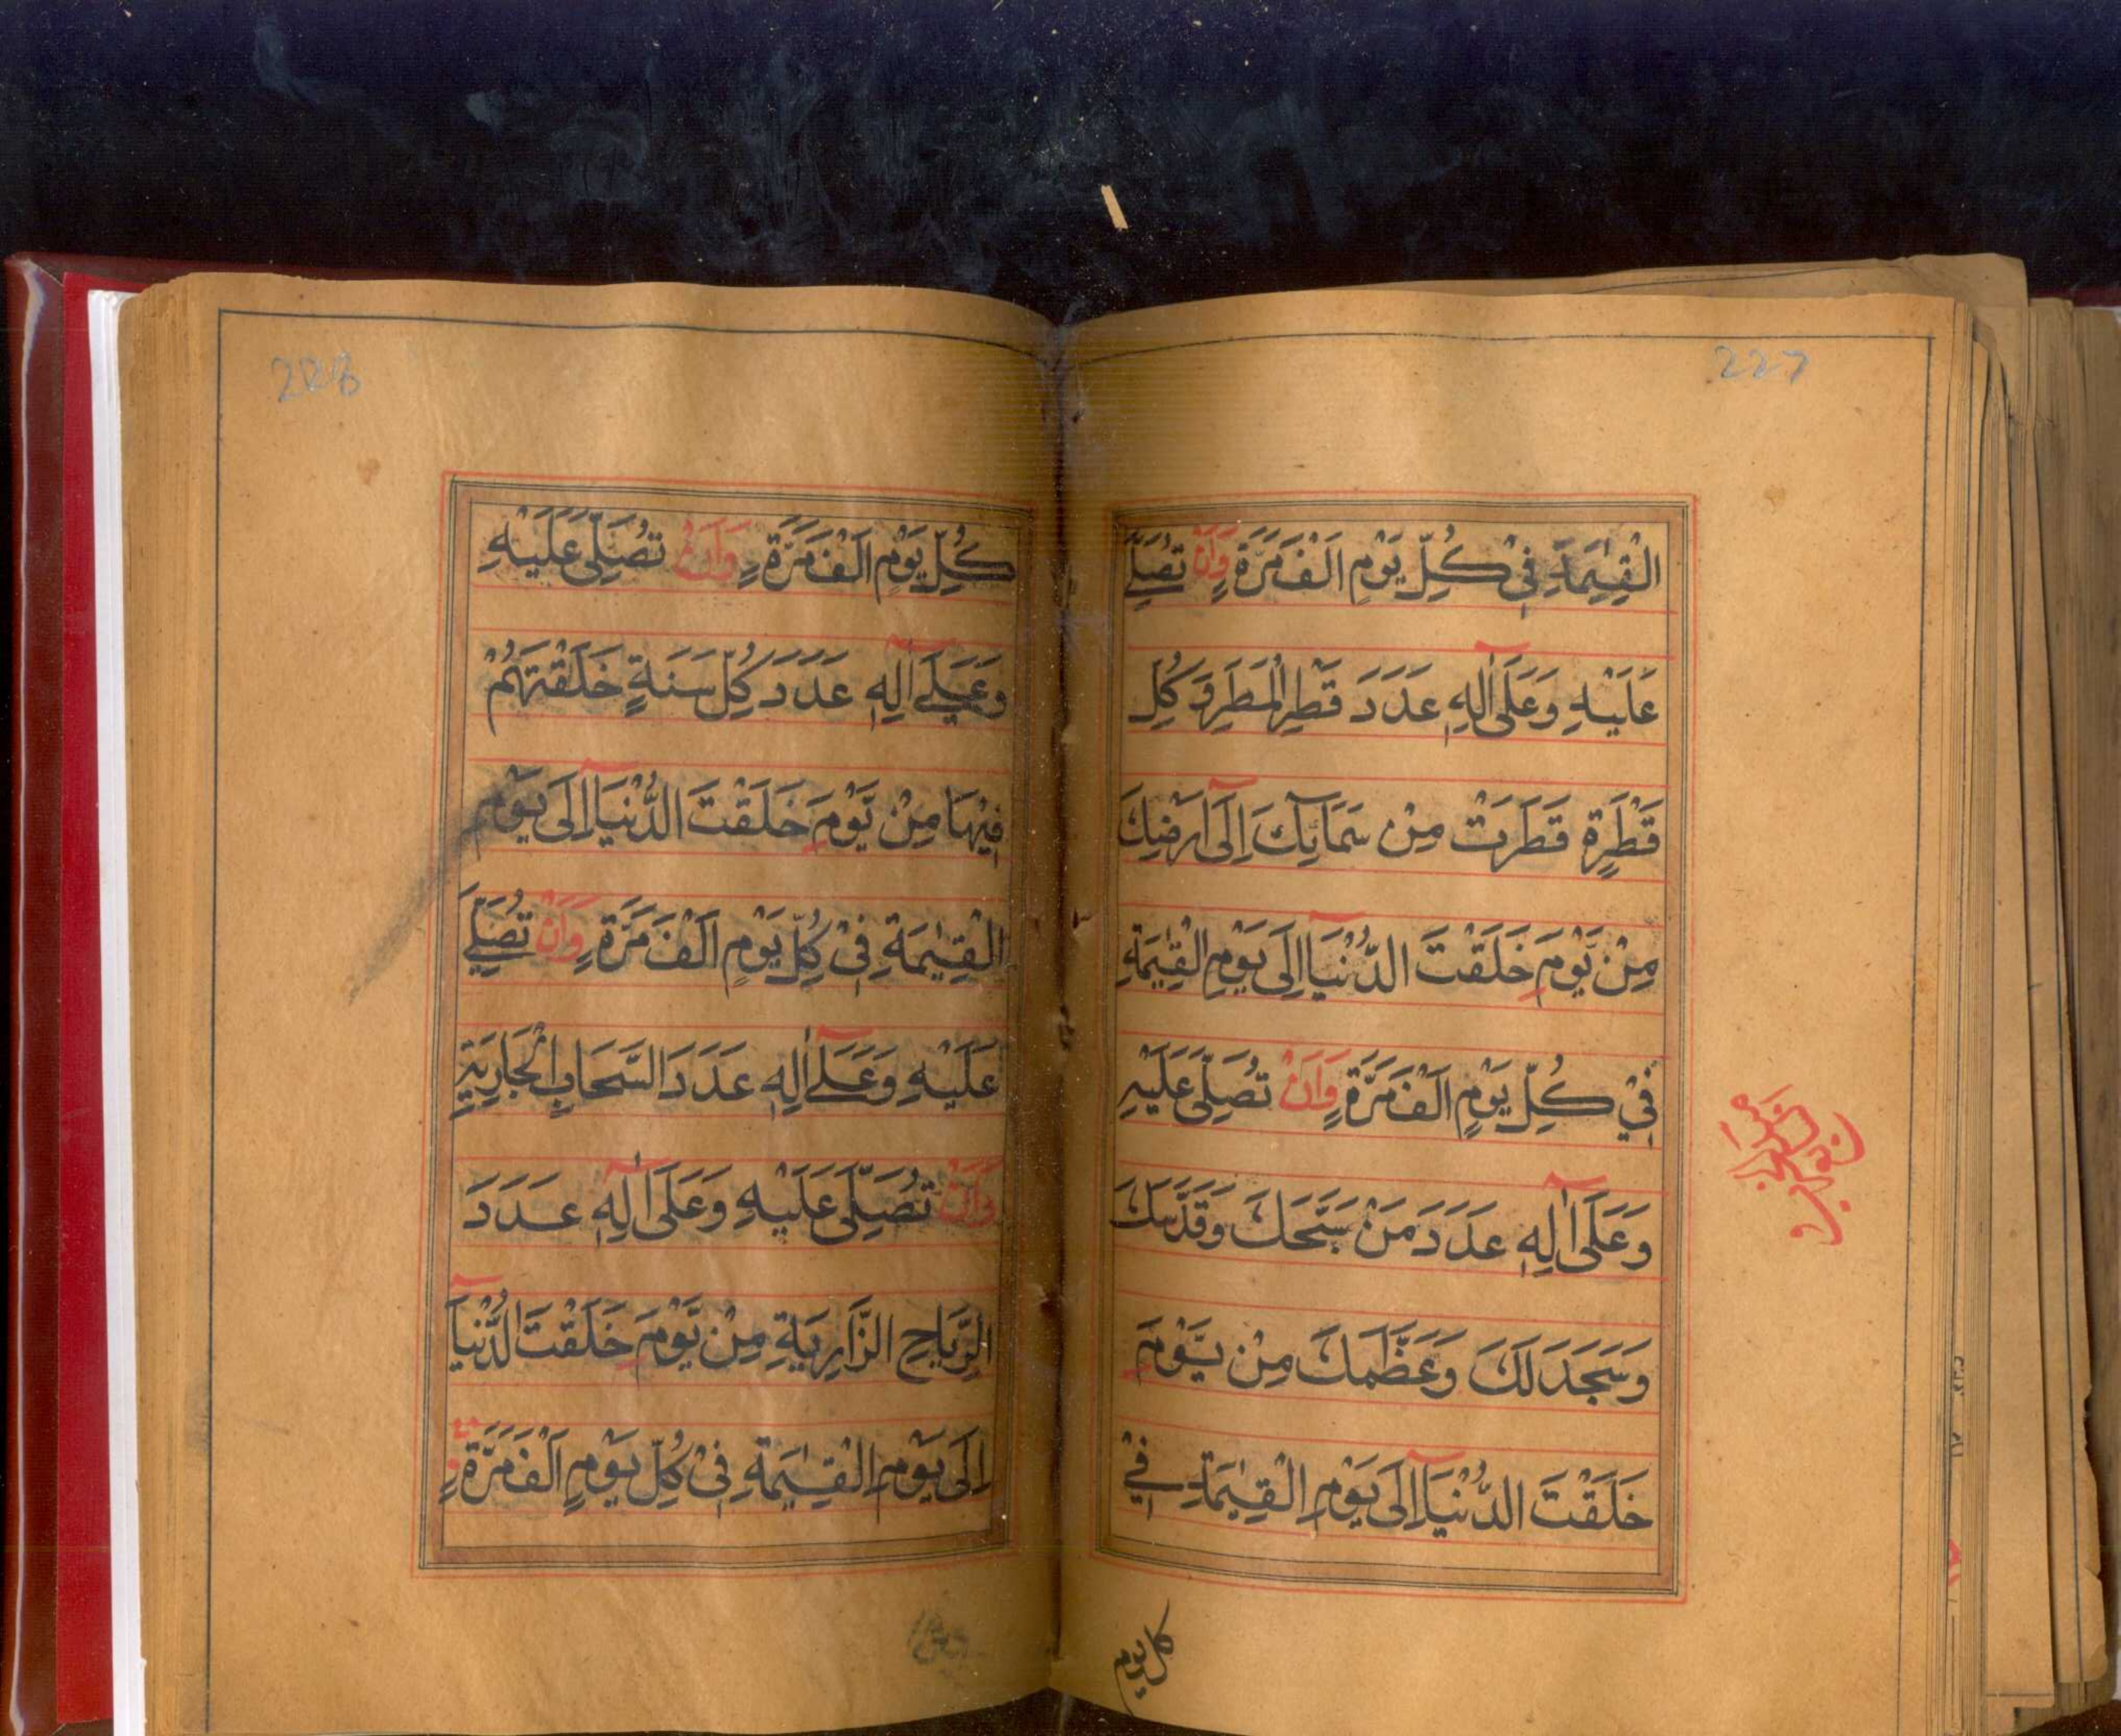 227
الْقِيٰمَةِ فِيْ كُلِّ يَوْمٍ اَلْفَ مَرَّةٍ وَاَنْ تُصَلِّيَ
عَلَيْهِ وَعَلَىٰٓ اٰلِهٖ عَدَدَ قَطْرِ الْمَطَرِ وَ كُلِّ
قَطْرَةٍ قَطَرَتْ مِنْ سَمَآئِكَ اِلَىٰٓ اَرْضِكَ
مِنْ يَّوْمِ خَلَقْتَ الدُّنْيَآ اِلَى يَوْمِ الْقِيٰمَةِ
فِيْ كُلِّ يَوْمٍ اَلْفَ مَرَّةٍ وَاَنْ تُصَلِّيَ عَلَيْهِ
وَعَلَىٰٓ اٰلِهٖ عَدَدَ مَنْ سَبَّحَكَ وَقَدَّسَكَ
وَسَجَدَ لَكَ وَعَظَّمَكَ مِنْ يَّوْمِ
خَلَقْتَ الدُّنْيَآ اِلَى يَوْمِ الْقِيٰمَةِ فِيْ
كل يوم
228
كُلِّ يَوْمٍ اَلْفَ مَرَّةٍ وَاَنْ تُصَلِّيَ عَلَيْهِ
وَعَلَىٰٓ اٰلِهٖ عَدَدَ كُلِّ سَنَةٍ خَلَقْتَهُمْ
فِيْهَا مِنْ يَّوْمِ خَلَقْتَ الدُّنْيَآ اِلَى يَوْمِ
الْقِيٰمَةِ فِيْ كُلِّ يَوْمٍ اَلْفَ مَرَّةٍ وَاَنْ تُصَلِّيَ
عَلَيْهِ وَعَلَىٰٓ اٰلِهٖ عَدَدَ السَّحَابِ الْجَارِيَةِ
وَاَنْ تُصَلِّيَ عَلَيْهِ وَعَلَىٰٓ اٰلِهٖ عَدَدَ
الرِّيَاحِ الزَّارِيَةِ مِنْ يَّوْمِ خَلَقْتَ الدُّنْيَآ
اِلَى يَوْمِ الْقِيٰمَةِ فِيْ كُلِّ يَوْمٍ اَلْفَ مَرَّةٍ